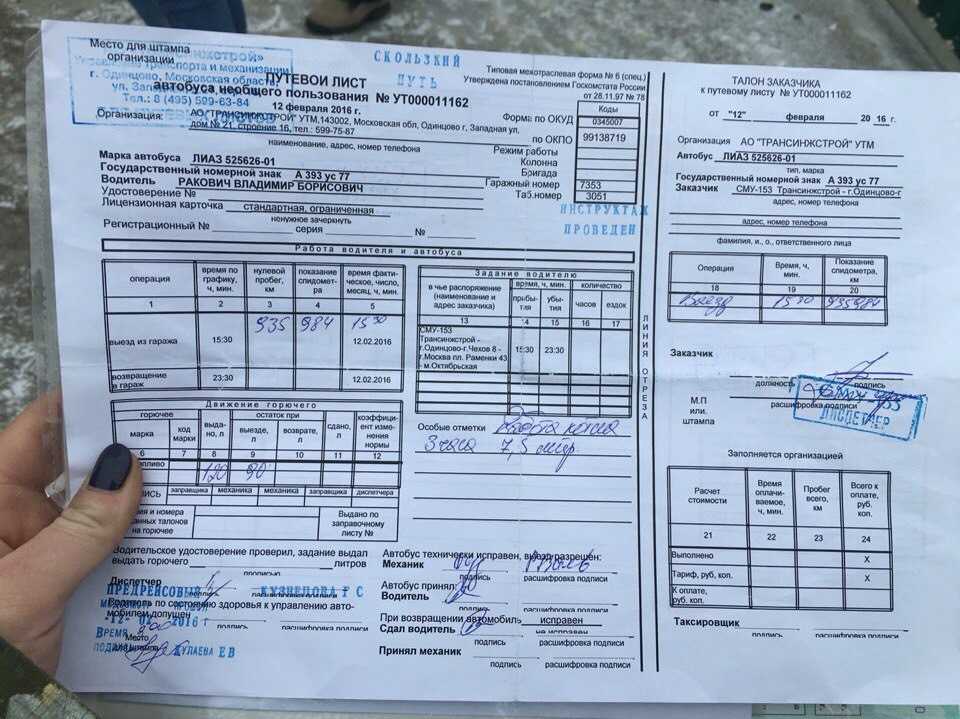 Место для штампа
организации
СКОЛЬЗКИЙ
ПУТЬ
Управление транспорта и механизации
г. Одинцово, Московская область,
Тел.: 8 (495) 599-63-84
Типовая межотраслевая форма № 6 (спец.)
Утверждена постановлением Госкомстата России
от 28.11.97 № 78
ПУТЕВОЙ ЛИСТ
автобуса необщего пользования № УТ000011162
12 февраля 2016 г.
Коды
Форма по ОКУД 0345007
Организация: АО "ТРАНСИНЖСТРОЙ" УТМ,143002, Московская обл, Одинцово г, Западная ул,
дом № 21, строение 16, тел.: 599-75-87
по ОКПО 99138719
наименование, адрес, номер телефона
Режим работы
Колонна
Бригада
Марка автобуса ЛИАЗ 525626-01
Государственный номерной знак А 393 ус 77
Гаражный номер 7353
Водитель РАКОВИЧ ВЛАДИМИР БОРИСОВИЧ
Таб.номер 3051
Удостоверение №
Лицензионная карточка стандартная, ограниченная
ненужное зачеркнуть
ИНСТРУКТАЖ
ПРОВЕДЕН
Регистрационный № серия №
Работа водителя и автобуса
операция
время по графику, ч, мин.
нулевой пробег, км
показание спидометра
время фактическое, число, месяц, ч, мин.
1 2 3 4 5
выезд из гаража 15:30 935 984 15 30 12.02.2016
возвращение в гараж 23:30 12.02.2016
Задание водителю
в чье распоряжение (наименование и адрес заказчика)
время, ч, мин.
количество
прибытия
убытия
часов
ездок
13 14 15 16 17
СМУ-153
Трансинжстрой -
г.Одинцово-г.Чехов 8 -
г.Москва пл. Раменки 43
м.Октябрьская
15:30 23:30
Движение горючего
горючее
остаток при
коэффициент изменения нормы
марка
код марки
выдано, л
выезде, л
возврате, л
сдано, л
6 7 8 9 10 11 12
120 90
заправщика механика механика заправщика диспетчера
Выдано по
заправочному
листу №
на горючее
Особые отметки
3 часа 7,5
ЛИНИЯ ОТРЕЗА
Водительское удостоверение проверил, задание выдал
выдать горючего литров
прописью
Диспетчер
подпись расшифровка подписи
ПРЕДРЕЙСОВЫЙ
КУЗНЕЦОВА Г С
Водитель по состоянию здоровья к управлению автомобилем допущен
12 02 2016 г
подпись расшифровка подписи
ВРЕМЯ
Место
штампа
КУЛАЕВА Е В
подпись расшифровка подписи
Автобус технически исправен, выезд разрешен:
Механик
подпись расшифровка подписи
Автобус принял
Водитель
подпись расшифровка подписи
При возвращении автомобиль исправен
не исправен
Сдал водитель
подпись расшифровка подписи
Принял механик
подпись расшифровка подписи
ТАЛОН ЗАКАЗЧИКА
к путевому листу № УТ000011162
от "12" февраля 2016 г.
Организация АО "ТРАНСИНЖСТРОЙ" УТМ
Автобус ЛИАЗ 525626-01
тип, марка
Государственный номерной знак А 393 ус 77
Заказчик СМУ-153 Трансинжстрой - г.Одинцово-г
адрес, номер телефона
адрес, номер телефона
фамилия, и., о., ответственного лица
Операция
Время, ч, мин.
Показание спидометра, км
18 19 20
Выезд 15 30 935984
Заказчик
должность подпись
расшифровка подписи
М.П
или.
штампа
ДИСПЕТЧЕР
Заполняется организацией
Расчет стоимости
Время оплачиваемое, ч, мин.
Пробег всего, км
Всего к оплате, руб. коп.
21 22 23 24
Выполнено X
Тариф, руб, коп. X
К оплате,
руб. коп.
Таксировщик
подпись расшифровка подписи